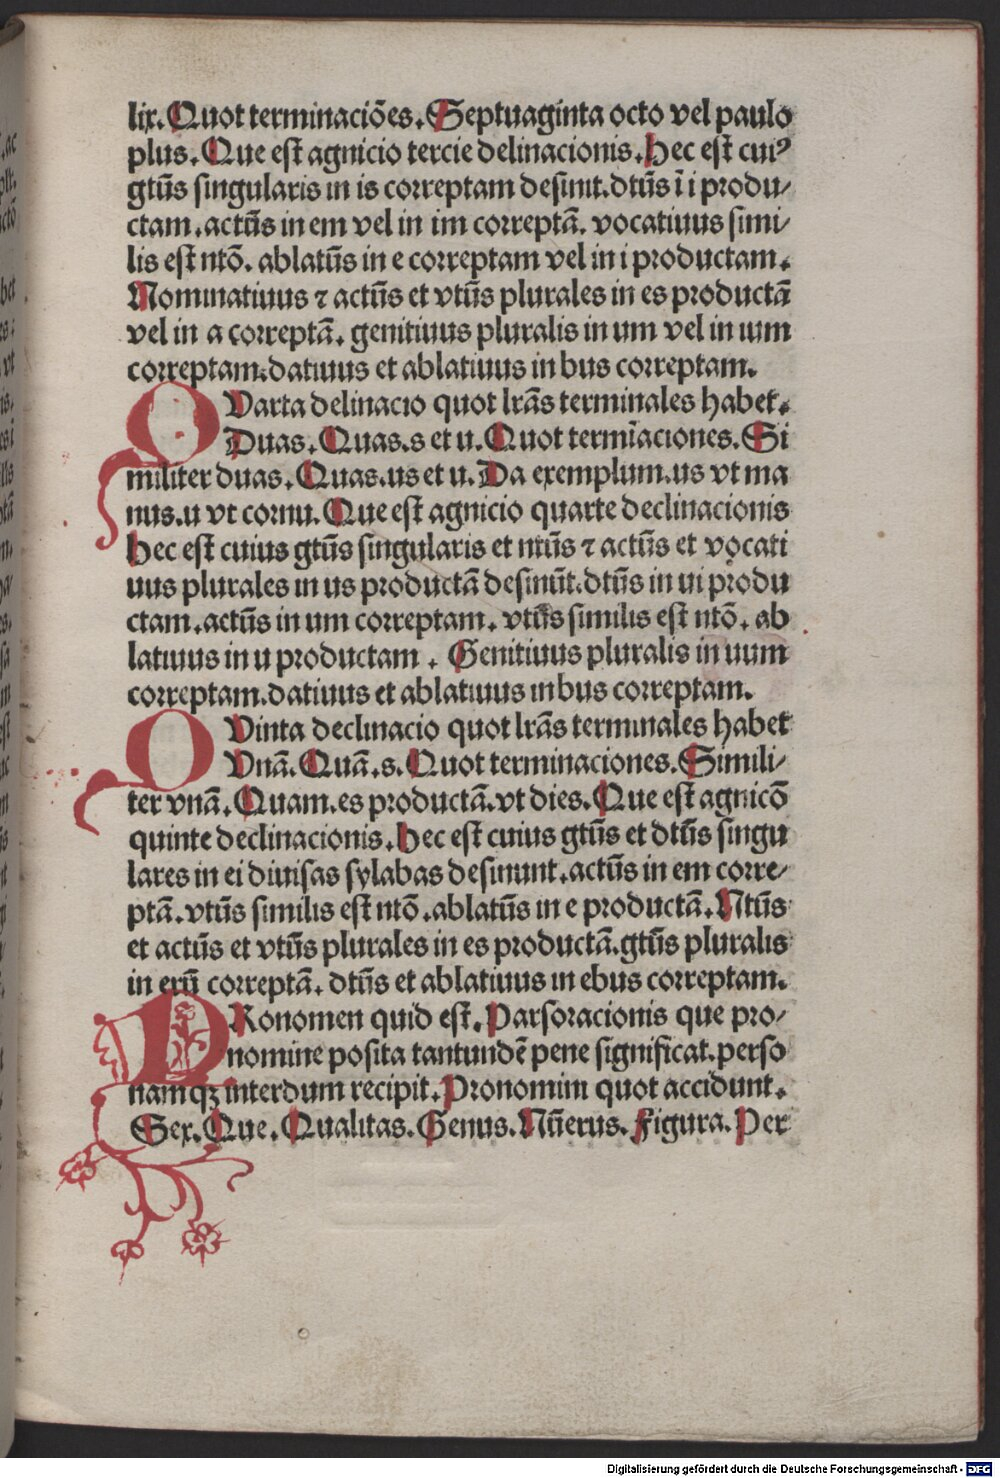 lix. Quot terminaciões. Septuaginta octo vel paulo
plus. Que est agnicio tercie delinacionis. Hec est cuiꝰ
gtūs singularis in is correptam desinit. dtūs ī i produ/
ctam. actūs in em vel in im correptā. vocatiuus simi/
lis est ntō. ablatūs in e correptam vel in i productam.
Nominatiuus ⁊ actūs et vtūs plurales in es productā
vel in a correptā. genitiuus pluralis in um vel in ium
correptam. datiuus et ablatiuus in bus correptam.
QVarta delinacio quot lrās terminales habet.
Duas. Quas. s et u. Quot termīaciones. Si
militer duas. Quas. us et u. Da exemplum. us vt ma
nus. u vt cornu. Que est agnicio quarte declinacionis
Hec est cuius gtūs singularis et ntūs ⁊ actūs et vocati
uus plurales in us productā desinūt. dtūs in ui produ
ctam. actūs in um correptam. vtūs similis est ntō. ab
latiuus in u productam. Genitiuus pluralis in uum
correptam. datiuus et ablatiuus in bus correptam.
QVinta declinacio quot lrās terminales habet
Vnā. Quā. s. Quot terminaciones. Simili/
ter vnā. Quam. es productā. vt dies. Que est agnicō
quinte declinacionis. Hec est cuius gtūs et dtūs singu
lares in ei diuisas sylabas desinunt. actūs in em corre/
ptā. vtūs similis est ntō. ablatūs in e productā. Ntūs
et actūs et vtūs plurales in es productā. gtūs pluralis
in erū correptā. dtūs et ablatiuus in ebus correptam.
PRonomen quid est. Pars oracionis que pro/
nomine posita tantundē pene significat. perso
namqꝫ interdum recipit. Pronomini quot accidunt.
Sex. Que. Qualitas. Genus. Nūerus. Figura. Per
Digitalisierung gefördert durch die Deutsche Forschungsgemeinschaft - DFG